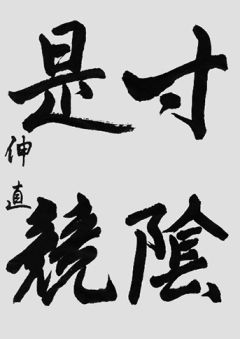 寸陰
是競
伸直